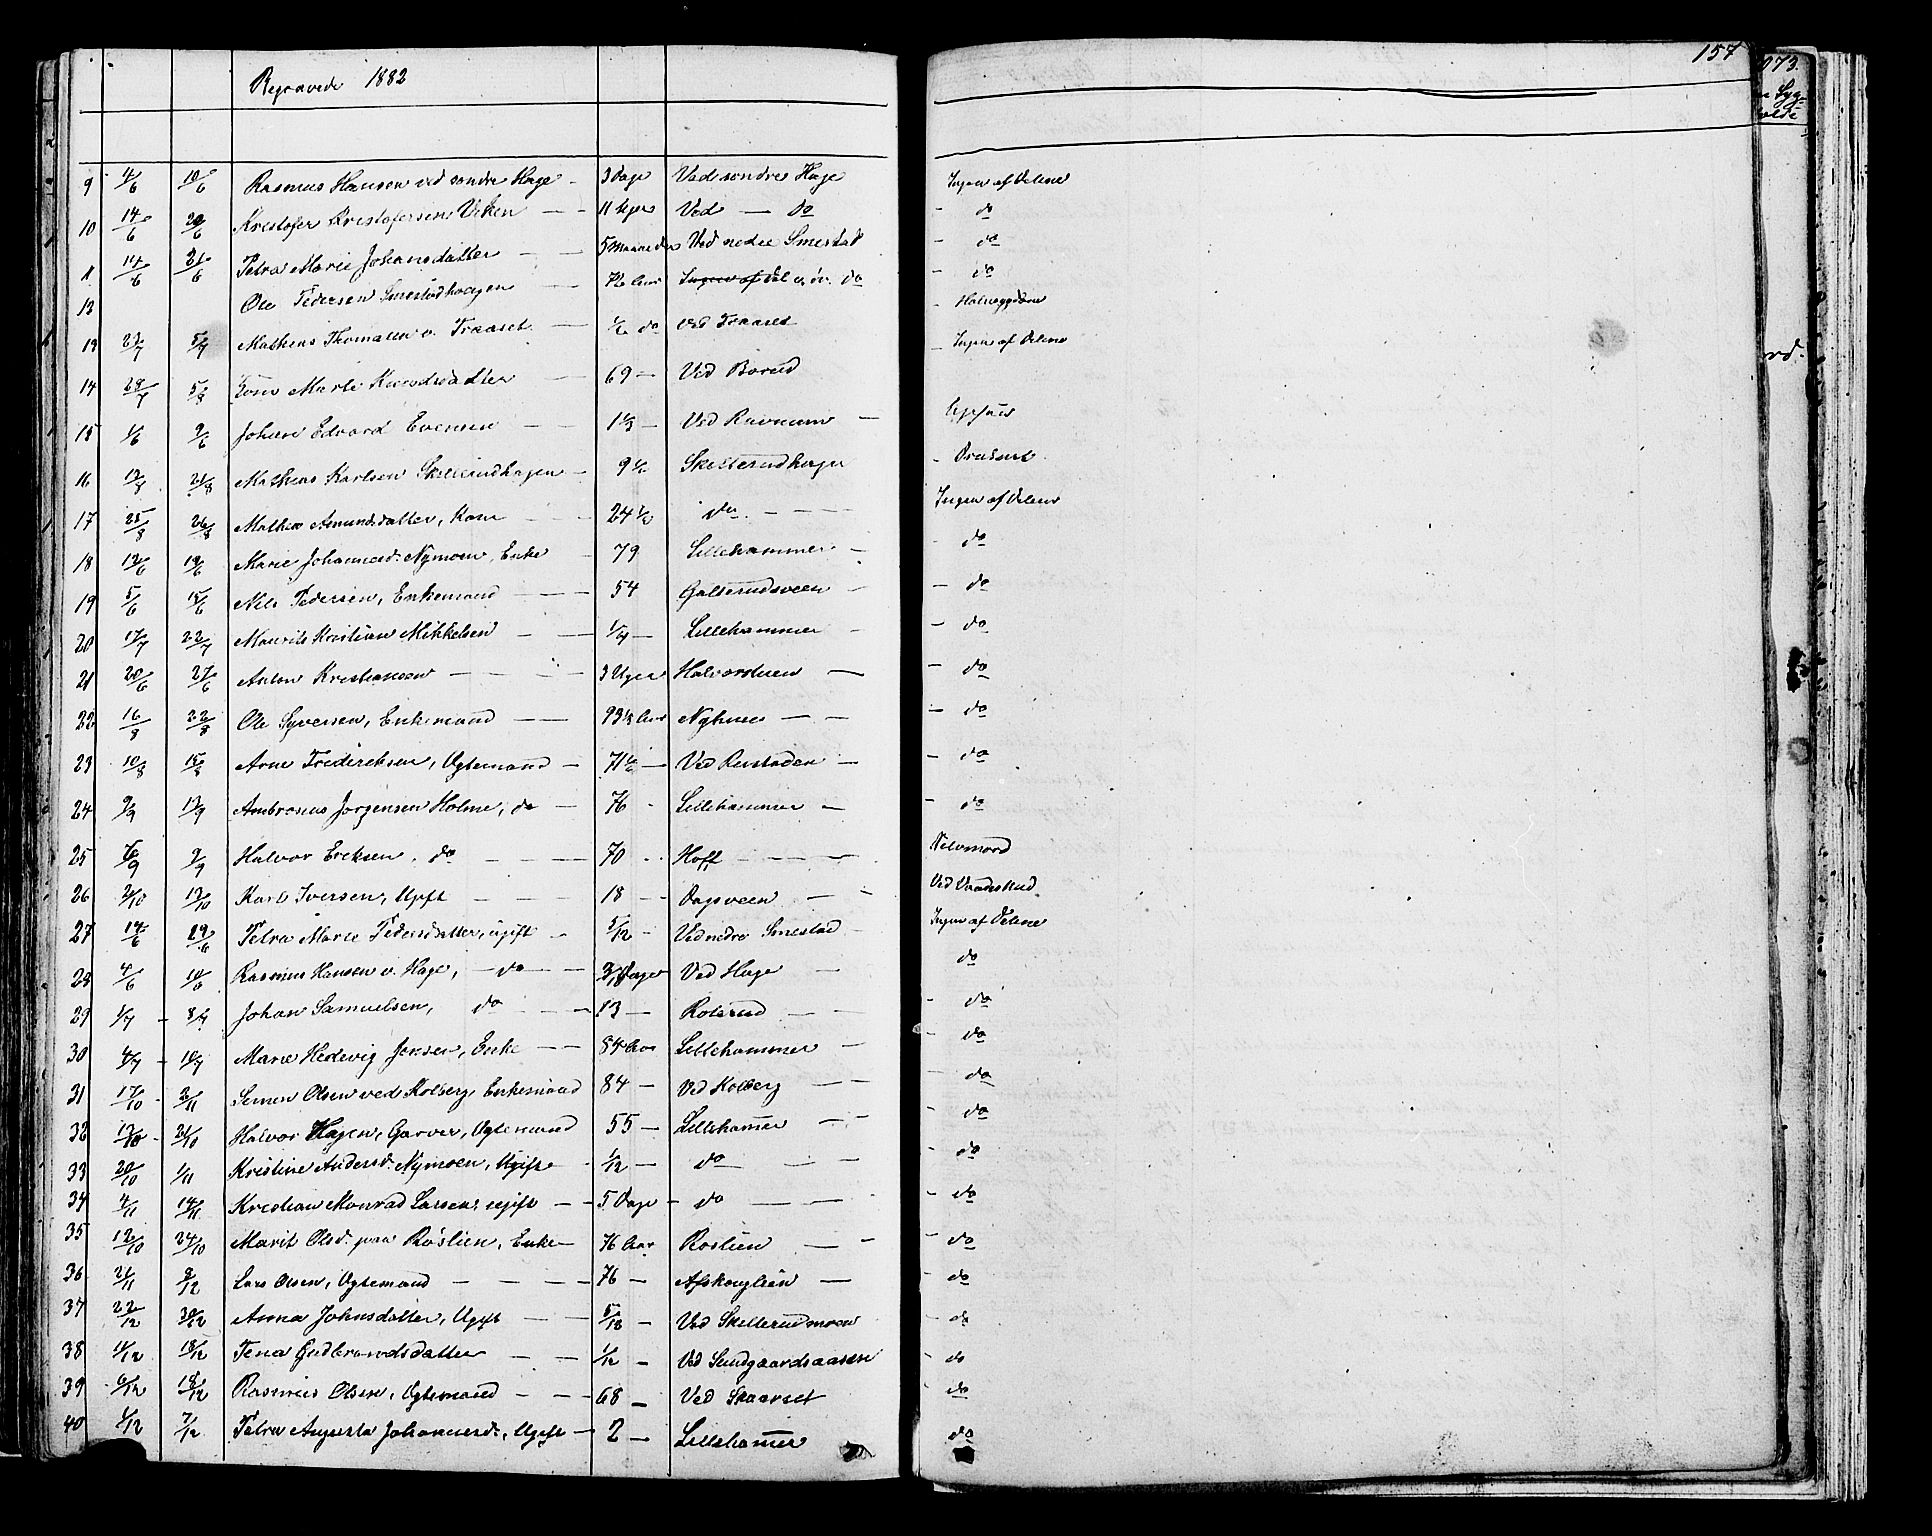 Begravede 1882
157
9 4/6 10/6 Rasmus Hansen ved søndre Hage - 3 Dage Ved søndre Hage Ingen af Delene
10 14/6 Kristofer Kristofersen Viken - - Ved - do - do
11 14/6 21/6 Petra Marie Johansdatter - 5 Maaneder Ved nedre Smestad - do
Ole Pedersen Smestadhaagen - do - do
13 Mathias v. Traaset - 1/2 do ved Traaset -
14 28/7 5/8 Marte Knudsdatter - 69 - Ved Borud - Ingen af Delene
15 1/6 9/6 Johan Edvard Evensen - - 1 1/3 - Ved -
16 21/8 Mathias Karlsen Skellerudhagen - 9 1/2 Skellerudhagen -
17 25/8 26/8 Mathea Amundsdatter, Kone - - 24 1/2 do - - - Ingen af Delene
18 Marie Nymoen, Enke - 79 Lillehammer - - do
19 5/6 15/6 Nils Pedersen, Enkemand - - 54 - - do
20 17/7 22/7 Maurits Kristian Mikkelsen - - 1/4 - Lillehammer - - do
21 20/6 27/6 Anton Kristiansen - - - 3 Uger - - do
22 16/8 22/8 Ole Syversen, Enkemand - - - - - do
23 10/8 15/8 Arne Frederiksen, Ogtemand - 71 1/2 - Ved - - do
24 9/9 13/9 Ambrosius Jorgensen Holme, do - 76 - Lillehammer - - do
25 9/9 Halvor Ereksen, do - - - 70 Hoff - - -
26 13/10 Karl Iversen, Ugift - - - 18 - Dagsveen - - Ved Vaadeskud
27 19/6 29/6 Petra Marie Pedersdatter, ugift - 5/12 - Ved nedre Smestad - Ingen af Delene
28 4/6 10/6 Rasmus Hansen v. Hage, - do - - 3 Dage Ved Hage - do
29 1/7 - 8/7 Johan Samuelsen, do - - - 13 - Roterud - - - do
30 4/7 - 10/7 Marie Hedevig Jensen, Enke - - 84 Aar Lillehammer - - do
31 17/10 - Semen Olsen ved Kolberg, Enkemand 84 - Ved Kolberg - - - do
32 13/10 - 21/10 Halvor Hagen, Garver, Ogtemand 55 - Lillehamer - - - do
33 20/10 1/11 Kristine Andersd. Nymoen, Ugift - 1/12 - do - - - do
34 4/11 14/11 Kristian Monrad Larsen, ugift - - 5 Dage - do - - - do
35 12/10 24/10 Marit Olsd. paa Røslien, Enke - 76 Aar Roslien - - - do
36 21/11 9/12 Lars Olsen, Ogtemand - - - 76 - Afskouglien - - do
37 22/12 30/12 Anna Johnsdatter, Ugift - - - Ved Skellerudmoen - do
38 11/12 18/12 Tena Gudbrandsdatter - - 1/12 - Ved Sundgaardsaasen - do
39 6/12 18/12 Rasmus Olsen, Ogtemand - - 68 - Ved Skaarset - do
40 1/12 7/12 Petra Augusta Johannesd., Ugift - 2 - Lillehamer - do